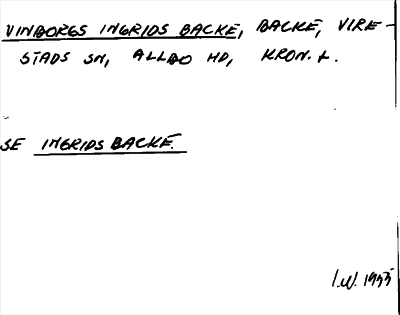 VINBORGS INGRIDS BACKE, BACKE, VIRE-
STADS SN, ALLBO HD, KRON. L.
SE INGRIDS BACKE.
I.W. 1955